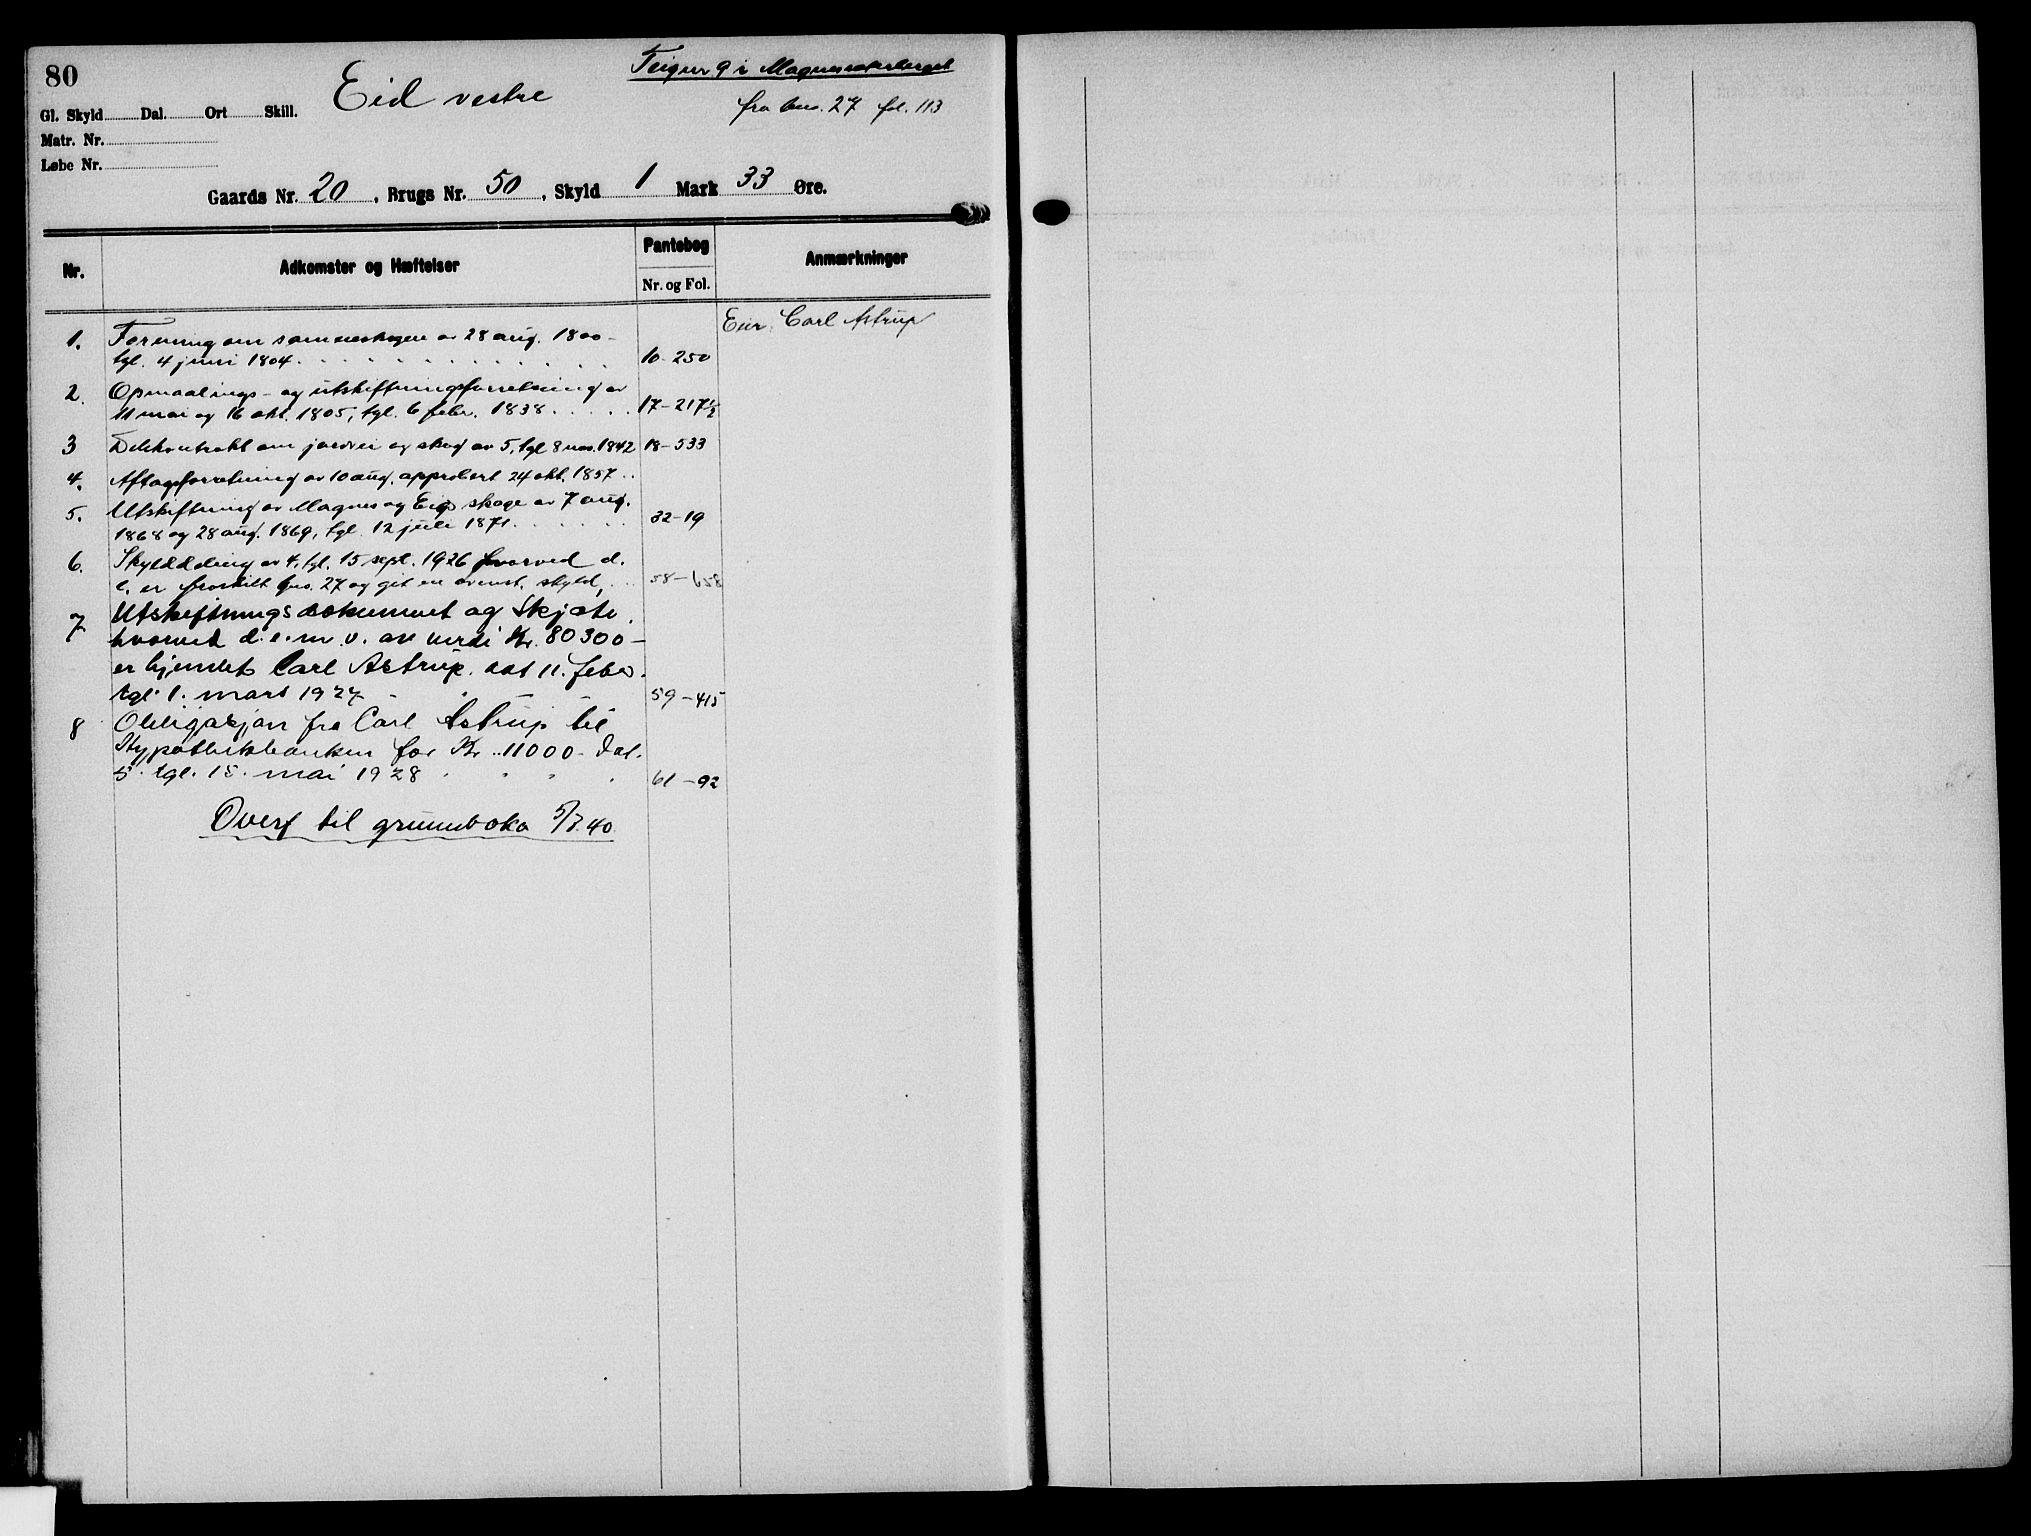 80
Eid vestre
Teigen 9 i
fra bno. 27 fol. 113
Gl. Skyld Dal. Ort Skill.
Matr. Nr.
Løbe Nr.
Gaards Nr. 20, Brugs Nr. 50, Skyld 1 Mark 33 Øre.
Nr. Adkomster og Hæftelser Pantebog Nr. og Fol. Anmærkninger
Eier: Carl Astrup
1. Forening om sameieskogen av 28 aug. 1800 -
tgl. 4 juni 1804. 10-250
2. Opmaalings- og utskiftningsforretning av
11 mai og 16 okt. 1805, tgl. 6 febr. 1838 17-217½
3 Delekontrakt om jordvei og skog av 5, tgl 8 nov. 1842 18-533
4. Aftagsforretning av 10 aug. approbert 24 okt. 1857
5. Utskiftning av Magnes og Eids skoge av 7 aug.
1868 og 28 aug. 1869, tgl. 12 juli 1871. 32-19
6. Skylddeling av 4, tgl. 15 sept. 1926 hvorved d.
e. er fraskilt bno. 27 og git en ovennt. skyld, 58-658
7 Utskiftningsdokument og Skjøte
hvorved d. e. m. v. av verdi Kr. 80300-
er hjemlet Carl Astrup. dat 11. febr.
tgl. 1. mars 1927 59-415
8 Obligasjon fra Carl Astrup til
Hypotekbanken for Kr. 11000- Dat.
5. tgl. 15. mai 1928 61-92
Overf til grunnboka 5/7.40.